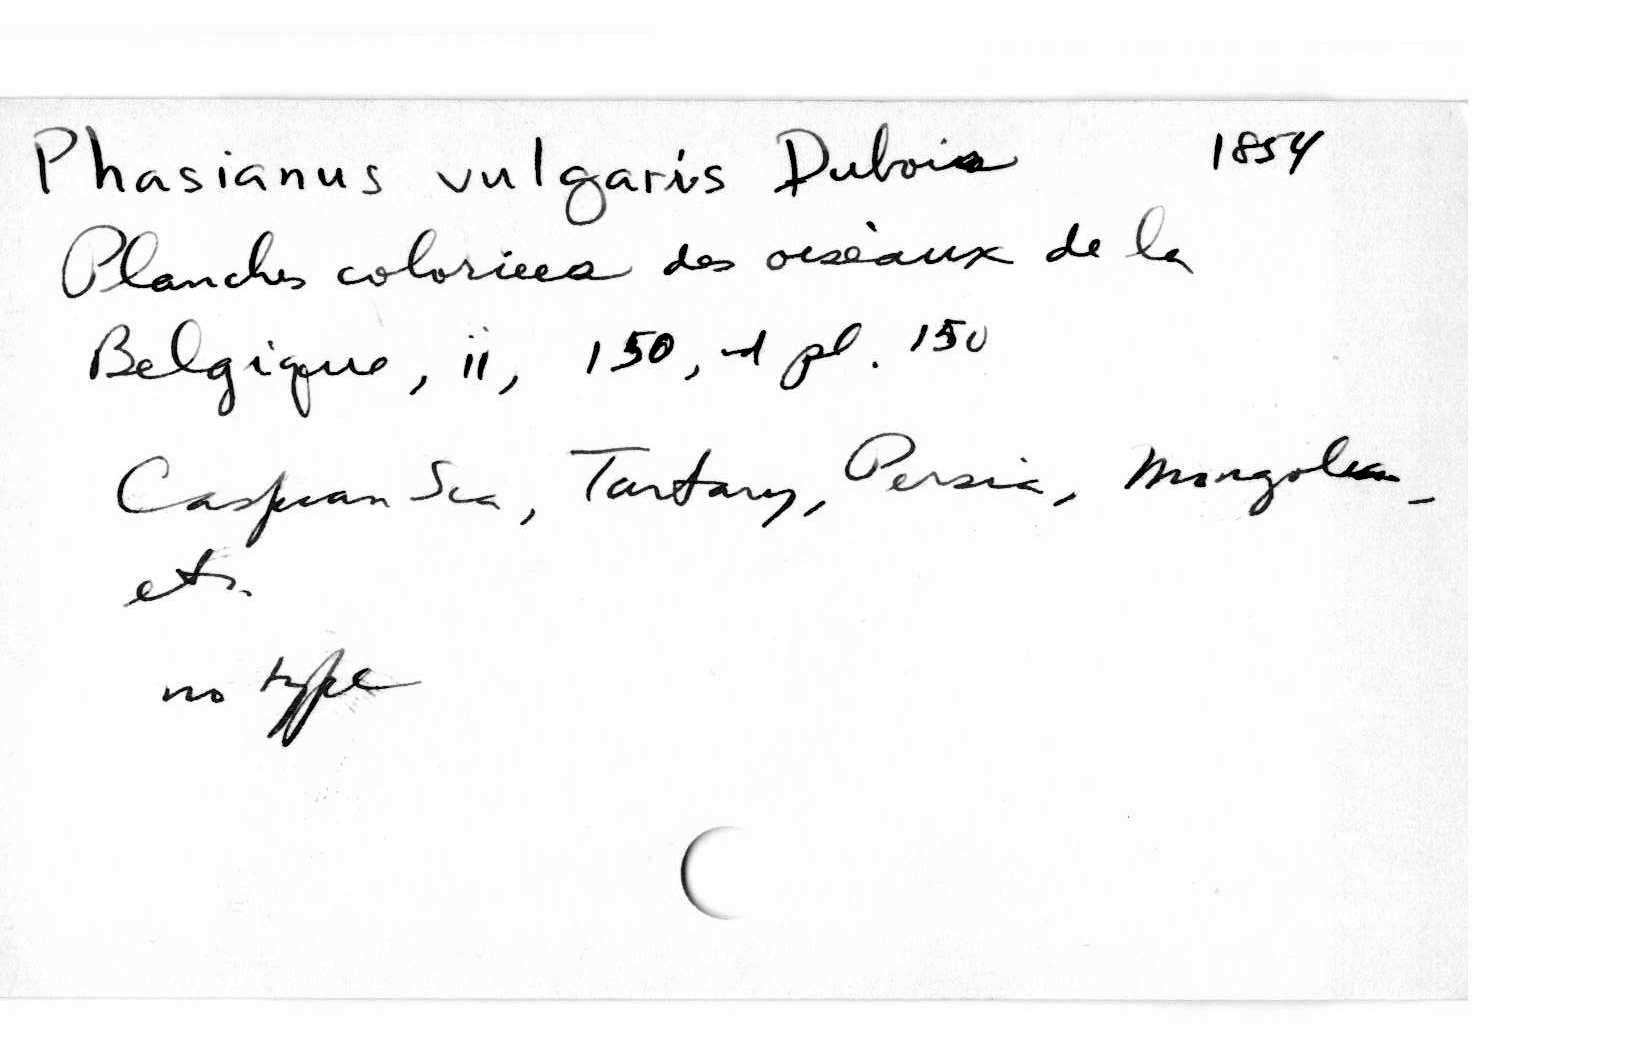 Phasianus vulgaris Dubois 1854
Planches coloriees des oiseaux de la
Belgique, ii, 150, et pl. 150
Caspian Sea, Tartary, Persia, Mongolia,
etc.
no type